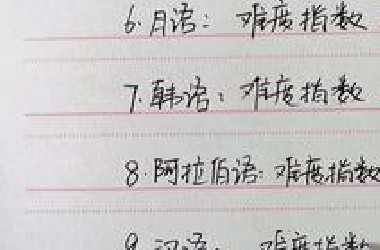 6.月语：难度指数
7.韩语：难度指数
8.阿拉伯语：难度指数
9.汉语：难度指数